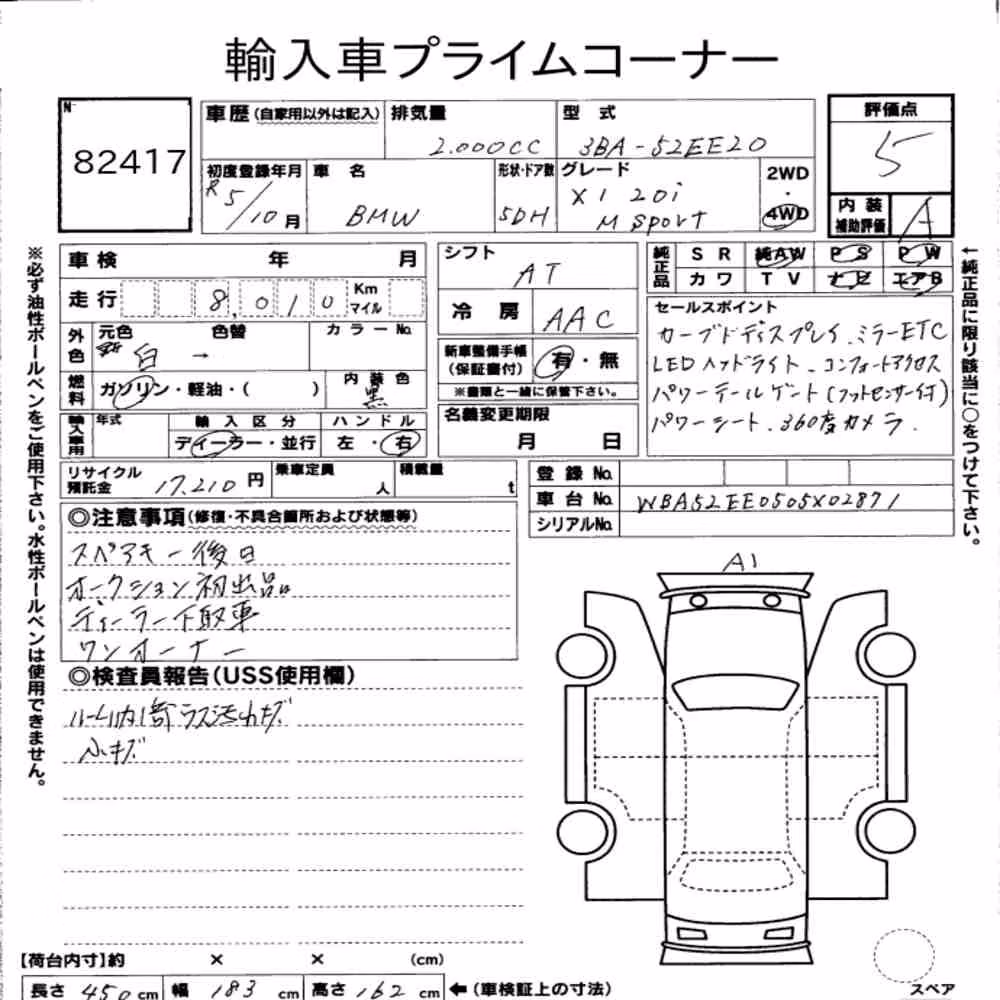 輸入車プライムコーナー
No
82417
車歴(自家用以外は記入) 排気量 2.000CC 型式 3BA-52EE20
評価点 5
初度登録年月 R5/10月 車名 BMW 形状・ドア数 5DH グレード X1 20i M Sport 2WD・4WD
内装補助評価 A
※必ず油性ボールペンをご使用下さい。水性ボールペンは使用できません。
車検 年 月
シフト AT
純正品 SR 純AW PS PW
カワ TV ナビ エアB
走行 8,010 Km マイル
冷房 AAC
外色 元色 白 色替 → カラーNo.
セールスポイント
カーブドディスプレイ.ミラーETC
LEDヘッドライト.コンフォートアクセス
パワーテールゲート(フットセンサー付)
パワーシート.360度カメラ.
新車整備手帳(保証書付) 有・無
※書類と一緒に保管下さい。
燃料 ガソリン・軽油・( ) 内装色 黒
輸入車用 年式 輸入区分 ディーラー・並行 ハンドル 左・右
名義変更期限 月 日
←純正品に限り該当に○をつけて下さい。
リサイクル預託金 17.210円 乗車定員 人 積載量 t
登録No.
車台No. WBA52EE0505X02871
シリアルNo.
◎注意事項(修復・不具合箇所および状態等)
スペアキー後日
オークション初出品
ディーラー下取車
ワンオーナー
◎検査員報告(USS使用欄)
小キズ
A1
【荷台内寸】約 × × (cm)
長さ 450cm 幅 183cm 高さ 162cm ←(車検証上の寸法)
スペア